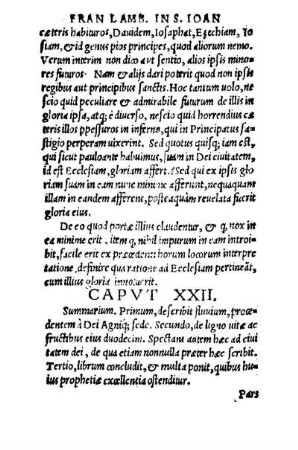 FRAN LAMB. IN S. IOAN
cæteris habituros, Dauidem, Iosaphat, Ezechiam, Io
siam, & id genus pios principes, quod aliorum nemo.
Verum interim non dico aut sentio, alios ipsis mino-
res futuros. Nam & alijs dari poterit quod non ipsis
regibus aut principibus sanctis. Hoc tantum uolo, ne
scio quid peculiare & admirabile futurum de illis in
gloria ipsa, atq; è diuerso, nescio quid horrendius cæ
teris illos ppessuros in inferno, qui in Principatus fa-
stigio perperam uixerint. Sed quotus quisq; iam est,
qui sicut pauloante habuimus, suam in Dei ciuitatem,
id est Ecclesiam, gloriam affert? Sed qui ex ipsis glo
riam suam in eam nunc minime afferunt, nequaquam
illam in eandem afferent, posteaquàm reuelata fuerit
gloria eius.
De eo quod portæ illius claudentur, & q, nox in
ea minime erit, item q, nihil impurum in eam introi-
bit, facile erit ex præcedentibus horum locorum interpre
tatione, definire qua ratione ad Ecclesiam pertineat,
cum illius gloria innotuerit.
CAPVT XXII.
Summarium. Primum, describit fluuium, proce-
dentem à Dei Agniq; sede. Secundo, de ligno uitæ ac
fructibus eius duodecim. Spectant autem hæc ad ciui
tatem dei, de qua etiam nonnulla præter hæc scribit.
Tertio, librum concludit, & multa ponit, quibus hu-
ius prophetiæ excellentia ostenditur.
Pars